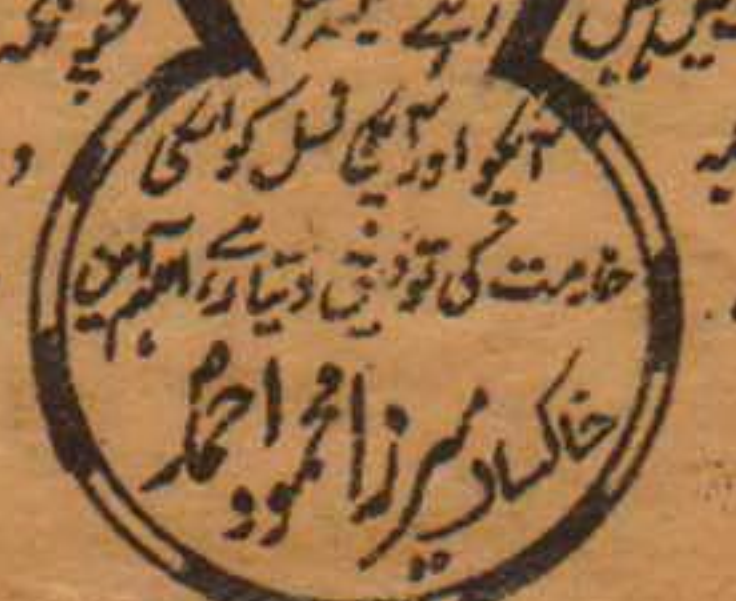 آپکو اور آپکی نسل کو اسکی
خدمت کی توفیق دیتا رہے، اللھم آمین
خاکسار میرزا محمود احمد